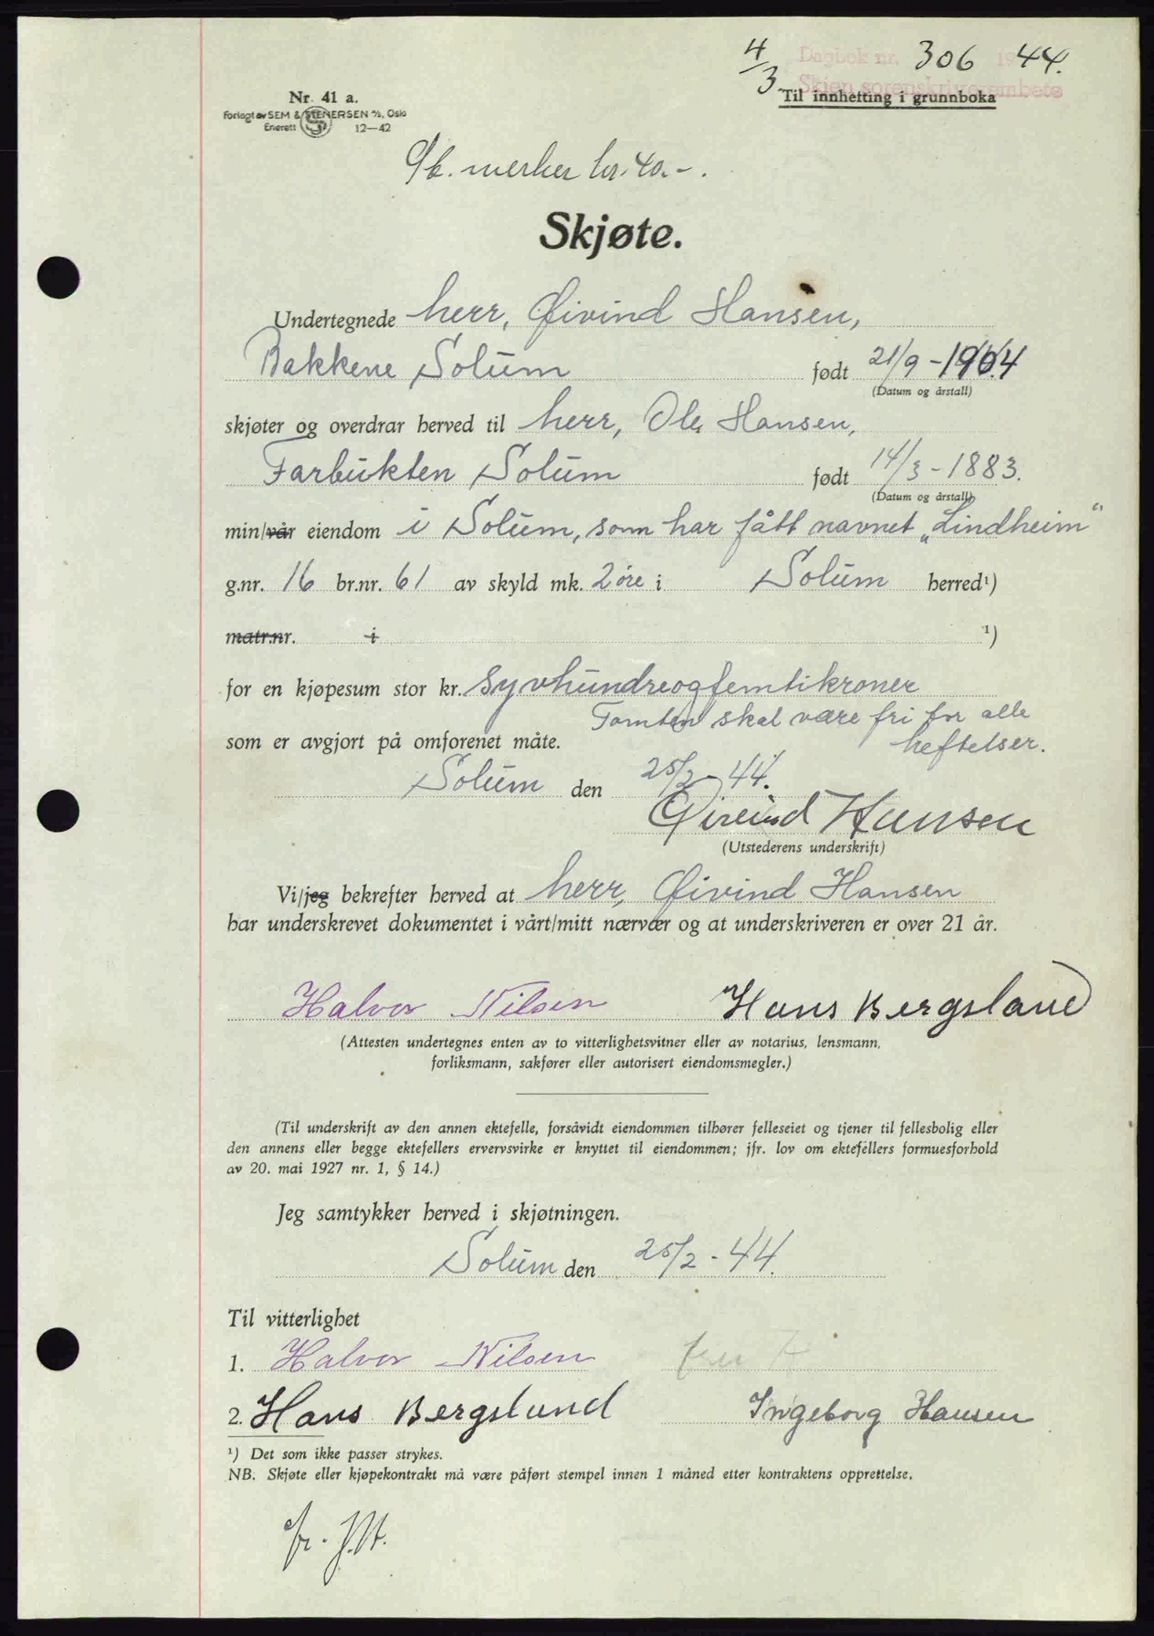 4/3 Dagbok nr. 306 1944.
Skien sorenskriverembete
Til innhefting i grunnboka
Nr. 41 a.
Forlagt av SEM & STENERSEN A/S, Oslo
Enerett 12—42
merker kr. 40.-.
Skjøte.
Undertegnede herr, Øivind Hansen,
Bakkene Solum født 21/9 - 1904
(Datum og årstall)
skjøter og overdrar herved til herr, Ole Hansen,
Farbukten Solum født 14/3 - 1883.
(Datum og årstall)
min/vår eiendom i Solum, som har fått navnet „Lindheim"
g.nr. 16 br.nr. 61 av skyld mk. 2 øre i Solum herred¹)
matr.nr. i ¹)
for en kjøpesum stor kr. Syvhundreogfemtikroner
Tomten skal være fri for alle
som er avgjort på omforenet måte. heftelser.
Solum den 25/2 - 44.
Øivind Hansen
(Utstederens underskrift)
Vi/jeg bekrefter herved at herr, Øivind Hansen
har underskrevet dokumentet i vårt/mitt nærvær og at underskriveren er over 21 år.
Halvor Nilsen Hans Bergsland
(Attesten undertegnes enten av to vitterlighetsvitner eller av notarius, lensmann,
forliksmann, sakfører eller autorisert eiendomsmegler.)
(Til underskrift av den annen ektefelle, forsåvidt eiendommen tilhører felleseiet og tjener til fellesbolig eller
den annens eller begge ektefellers ervervsvirke er knyttet til eiendommen; jfr. lov om ektefellers formuesforhold
av 20. mai 1927 nr. 1, § 14.)
Jeg samtykker herved i skjøtningen.
Solum den 25/2 - 44.
Til vitterlighet
1. Halvor Nilsen
2. Hans Bergslund Ingeborg Hansen
¹) Det som ikke passer strykes.
NB. Skjøte eller kjøpekontrakt må være påført stempel innen 1 måned etter kontraktens opprettelse.